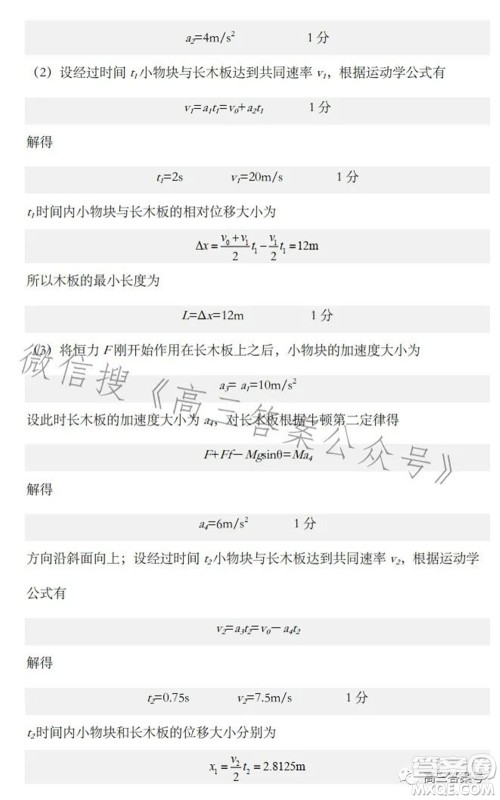 a₂=4m/s² 1分
（2）设经过时间 t₁小物块与长木板达到共同速率 v₁，根据运动学公式有
v₁=a₁t₁=v₀+a₂t₁ 1分
解得
t₁=2s v₁=20m/s 1分
t₁时间内小物块与长木板的相对位移大小为
Δx=\frac{v₀+v₁}{2}t₁−\frac{v₁}{2}t₁=12m
所以木板的最小长度为
L=Δx=12m 1分
（3）将恒力 F 刚开始作用在长木板上之后，小物块的加速度大小为
a₃= a₁=10m/s²
设此时长木板的加速度大小为 a₄，对长木板根据牛顿第二定律得
F+Ff−Mgsinθ=Ma₄
解得
a₄=6m/s² 1分
方向沿斜面向上；设经过时间 t₂小物块与长木板达到共同速率 v₂，根据运动学
公式有
v₂=a₃t₂=v₀−a₄t₂
解得
t₂=0.75s v₂=7.5m/s 1分
t₂时间内小物块和长木板的位移大小分别为
x₁=\frac{v₂}{2}t₂=2.8125m
微信搜《高三答案公众号》
高三答案号
答案圈
MXQE.COM